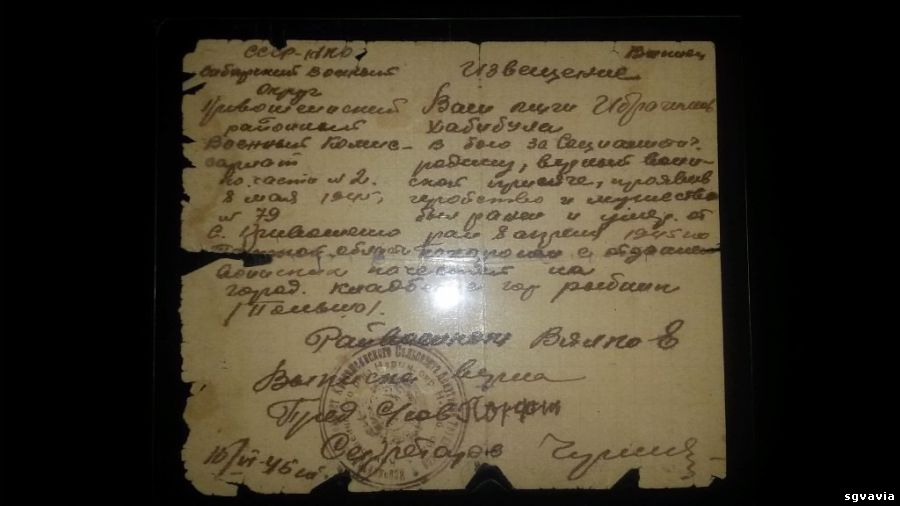 СССР-НКО
Сибирский Военный
Округ
Кривошеинский
районный
Военный Комис-
сариат
по части №2.
8 мая 1945,
№ 79
С. Кривошеино
Томской области
Извещение
Ваш Ибрагимов
Хабибула
В бою за Социалист.
родину, верный воин-
ской присяге, проявив
геройство и мужество
был ранен и умер от
ран 8 апреля 1945 го
похоронен с отданием
воинских почестей на
город. кладбище гор Рыбник
/Польша/.
Райвоенком
Выписка верна
Пред С/сов
Секретарь
sgvavia